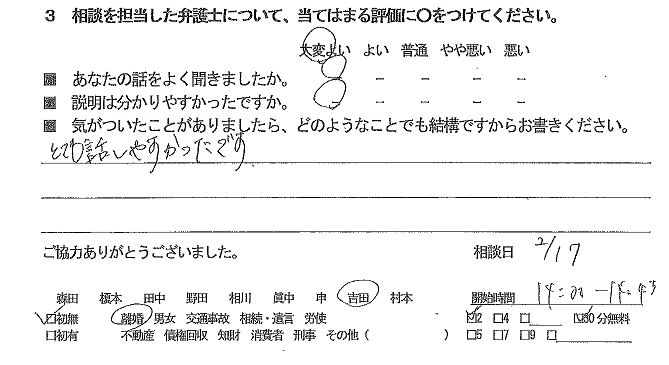 3 相談を担当した弁護士について、当てはまる評価に〇をつけてください。
大変よい よい 普通 やや悪い 悪い
あなたの話をよく聞きましたか。 － － － －
説明は分かりやすかったですか。 － － － －
気がついたことがありましたら、どのようなことでも結構ですからお書きください。
とても話しやすかったです
ご協力ありがとうございました。 相談日 2/17
森田 榎本 田中 野田 相川 眞中 申 吉田 村本 開始時間 14:00-14:45
☑初無 離婚 男女 交通事故 相続・遺言 労使 ☑2 □4 □ ☑30分無料
□初有 不動産 債権回収 知財 消費者 刑事 その他 ( ) □5 □7 □9 □